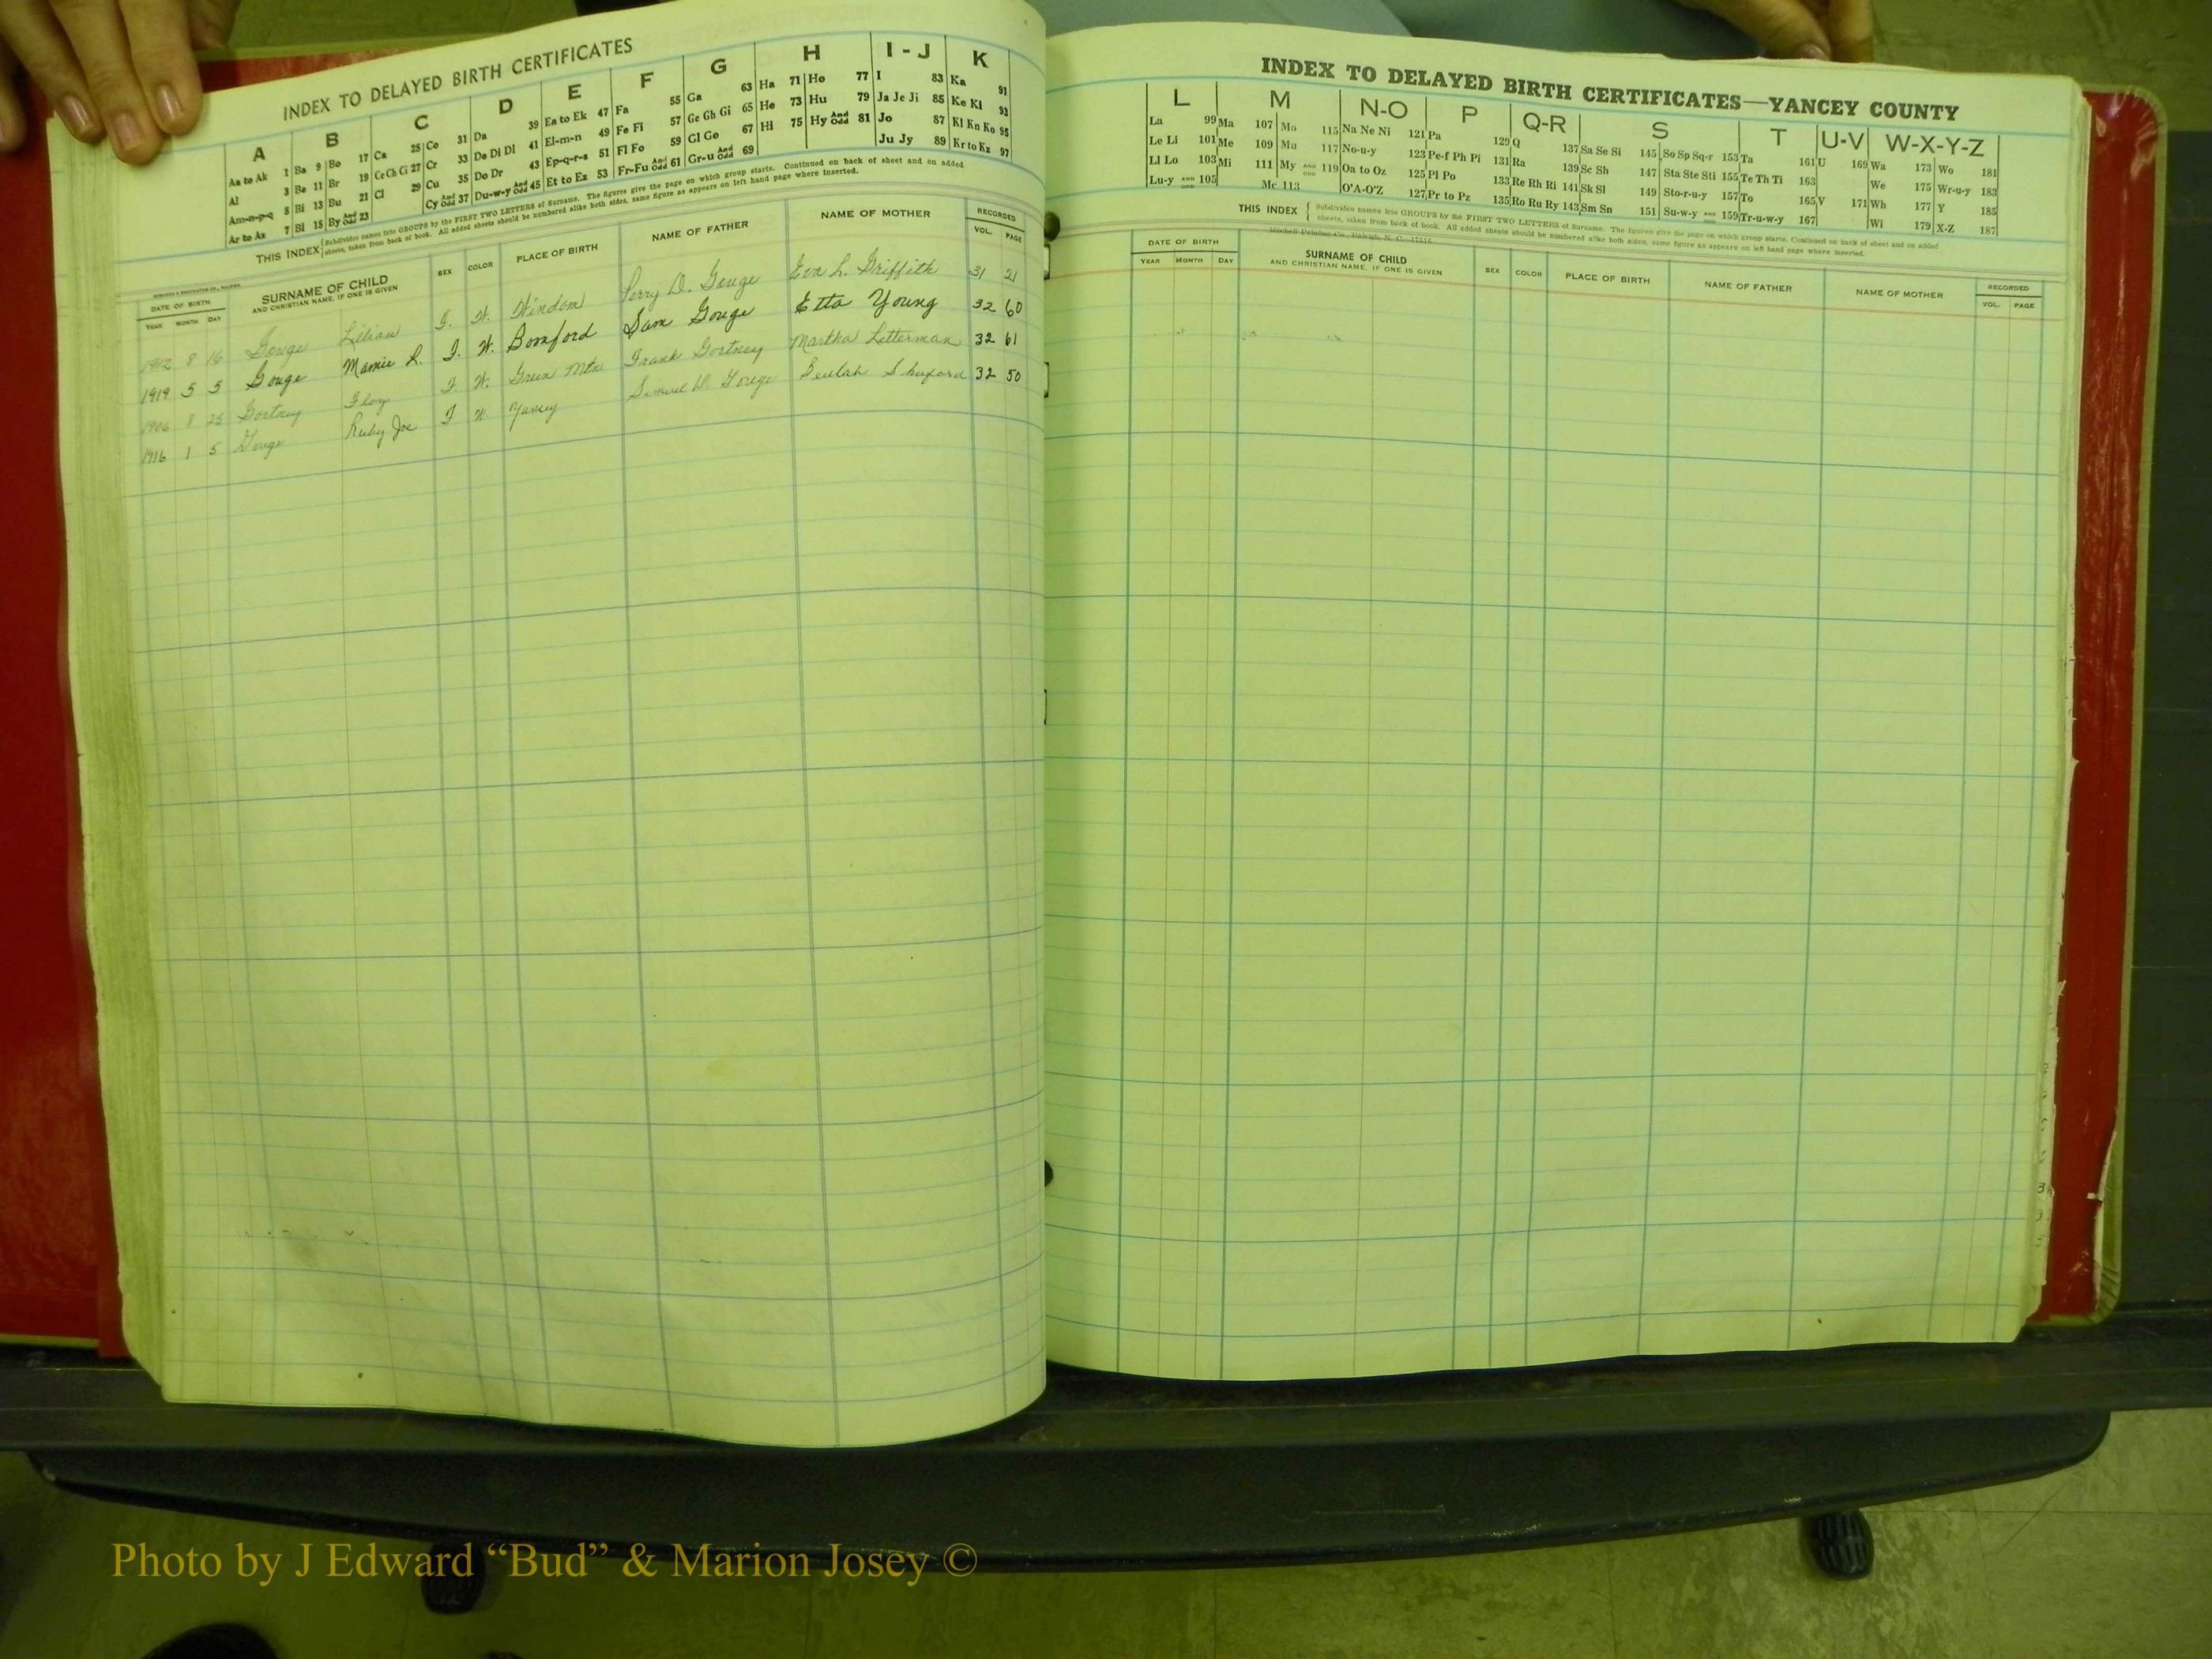 INDEX TO DELAYED BIRTH CERTIFICATES
A B C D E F G H I - J K
Aa to Ak 1 Ba 9 Bo 17 Ca 25 Co 31 Da 39 Ea to Ek 47 Fa 55 Ga 63 Ha 71 Ho 77 I 83 Ka 91
Al 3 Be 11 Br 19 Ce Ch Ci 27 Cr 33 De Di Dl 41 El-m-n 49 Fe Fi 57 Ge Gh Gi 65 He 73 Hu 79 Ja Je Ji 85 Ke Ki 93
Am-n-p-q 5 Bi 13 Bu 21 Cl 29 Cu 35 Do Dr 43 Ep-q-r-s 51 Fl Fo 59 Gl Go 67 Hi 75 Hy And Odd 81 Jo 87 Kl Kn Ko 95
Ar to Az 7 Bl 15 By And Odd 23 Cy And Odd 37 Du-w-y And Odd 45 Et to Ez 53 Fr-Fu And Odd 61 Gr-u And Odd 69 Ju Jy 89 Kr to Kz 97
THIS INDEX Subdivides names into GROUPS by the FIRST TWO LETTERS of Surname. The figures give the page on which group starts. Continued on back of sheet and on added
sheets, taken from back of book. All added sheets should be numbered alike both sides, same figure as appears on left hand page where inserted.
DATE OF BIRTH SURNAME OF CHILD SEX COLOR PLACE OF BIRTH NAME OF FATHER NAME OF MOTHER RECORDED
YEAR MONTH DAY AND CHRISTIAN NAME, IF ONE IS GIVEN VOL. PAGE
1912 8 16 Gouge Lilian F. W. Windom Perry D. Gouge Eva L. Griffith 31 21
1919 5 5 Gouge Mamie R. F. W. Boonford Sam Gouge Etta Young 32 60
1906 8 Gortney Floy F W. Green Mtn Frank Gortney Martha Letterman 32 61
1916 1 5 Gouge Ruby Joe F W Yancey Samuel W. Gouge Beulah Shuford 32 50
INDEX TO DELAYED BIRTH CERTIFICATES—YANCEY COUNTY
L M N-O P Q-R S T U-V W-X-Y-Z
La 99 Ma 107 Mo 115 Na Ne Ni 121 Pa 129 Q 137 Sa Se Si 145 So Sp Sq-r 153 Ta 161 U 169 Wa 173 Wo 181
Le Li 101 Me 109 Mu 117 No-u-y 123 Pe-f Ph Pi 131 Ra 139 Sc Sh 147 Sta Ste Sti 155 Te Th Ti 163 We 175 Wr-u-y 183
Ll Lo 103 Mi 111 My AND ODD 119 Oa to Oz 125 Pl Po 133 Re Rh Ri 141 Sk Sl 149 Sto-r-u-y 157 To 165 V 171 Wh 177 Y 185
Lu-y AND ODD 105 Mc 113 O'A-O'Z 127 Pr to Pz 135 Ro Ru Ry 143 Sm Sn 151 Su-w-y AND ODD 159 Tr-u-w-y 167 Wi 179 X-Z 187
THIS INDEX Subdivides names into GROUPS by the FIRST TWO LETTERS of Surname. The figures give the page on which group starts. Continued on back of sheet and on added
sheets, taken from back of book. All added sheets should be numbered alike both sides, same figure as appears on left hand page where inserted.
Mitchell Printing Co., Raleigh, N. C.
DATE OF BIRTH SURNAME OF CHILD SEX COLOR PLACE OF BIRTH NAME OF FATHER NAME OF MOTHER RECORDED
YEAR MONTH DAY AND CHRISTIAN NAME, IF ONE IS GIVEN VOL. PAGE
Photo by J Edward “Bud” & Marion Josey ©